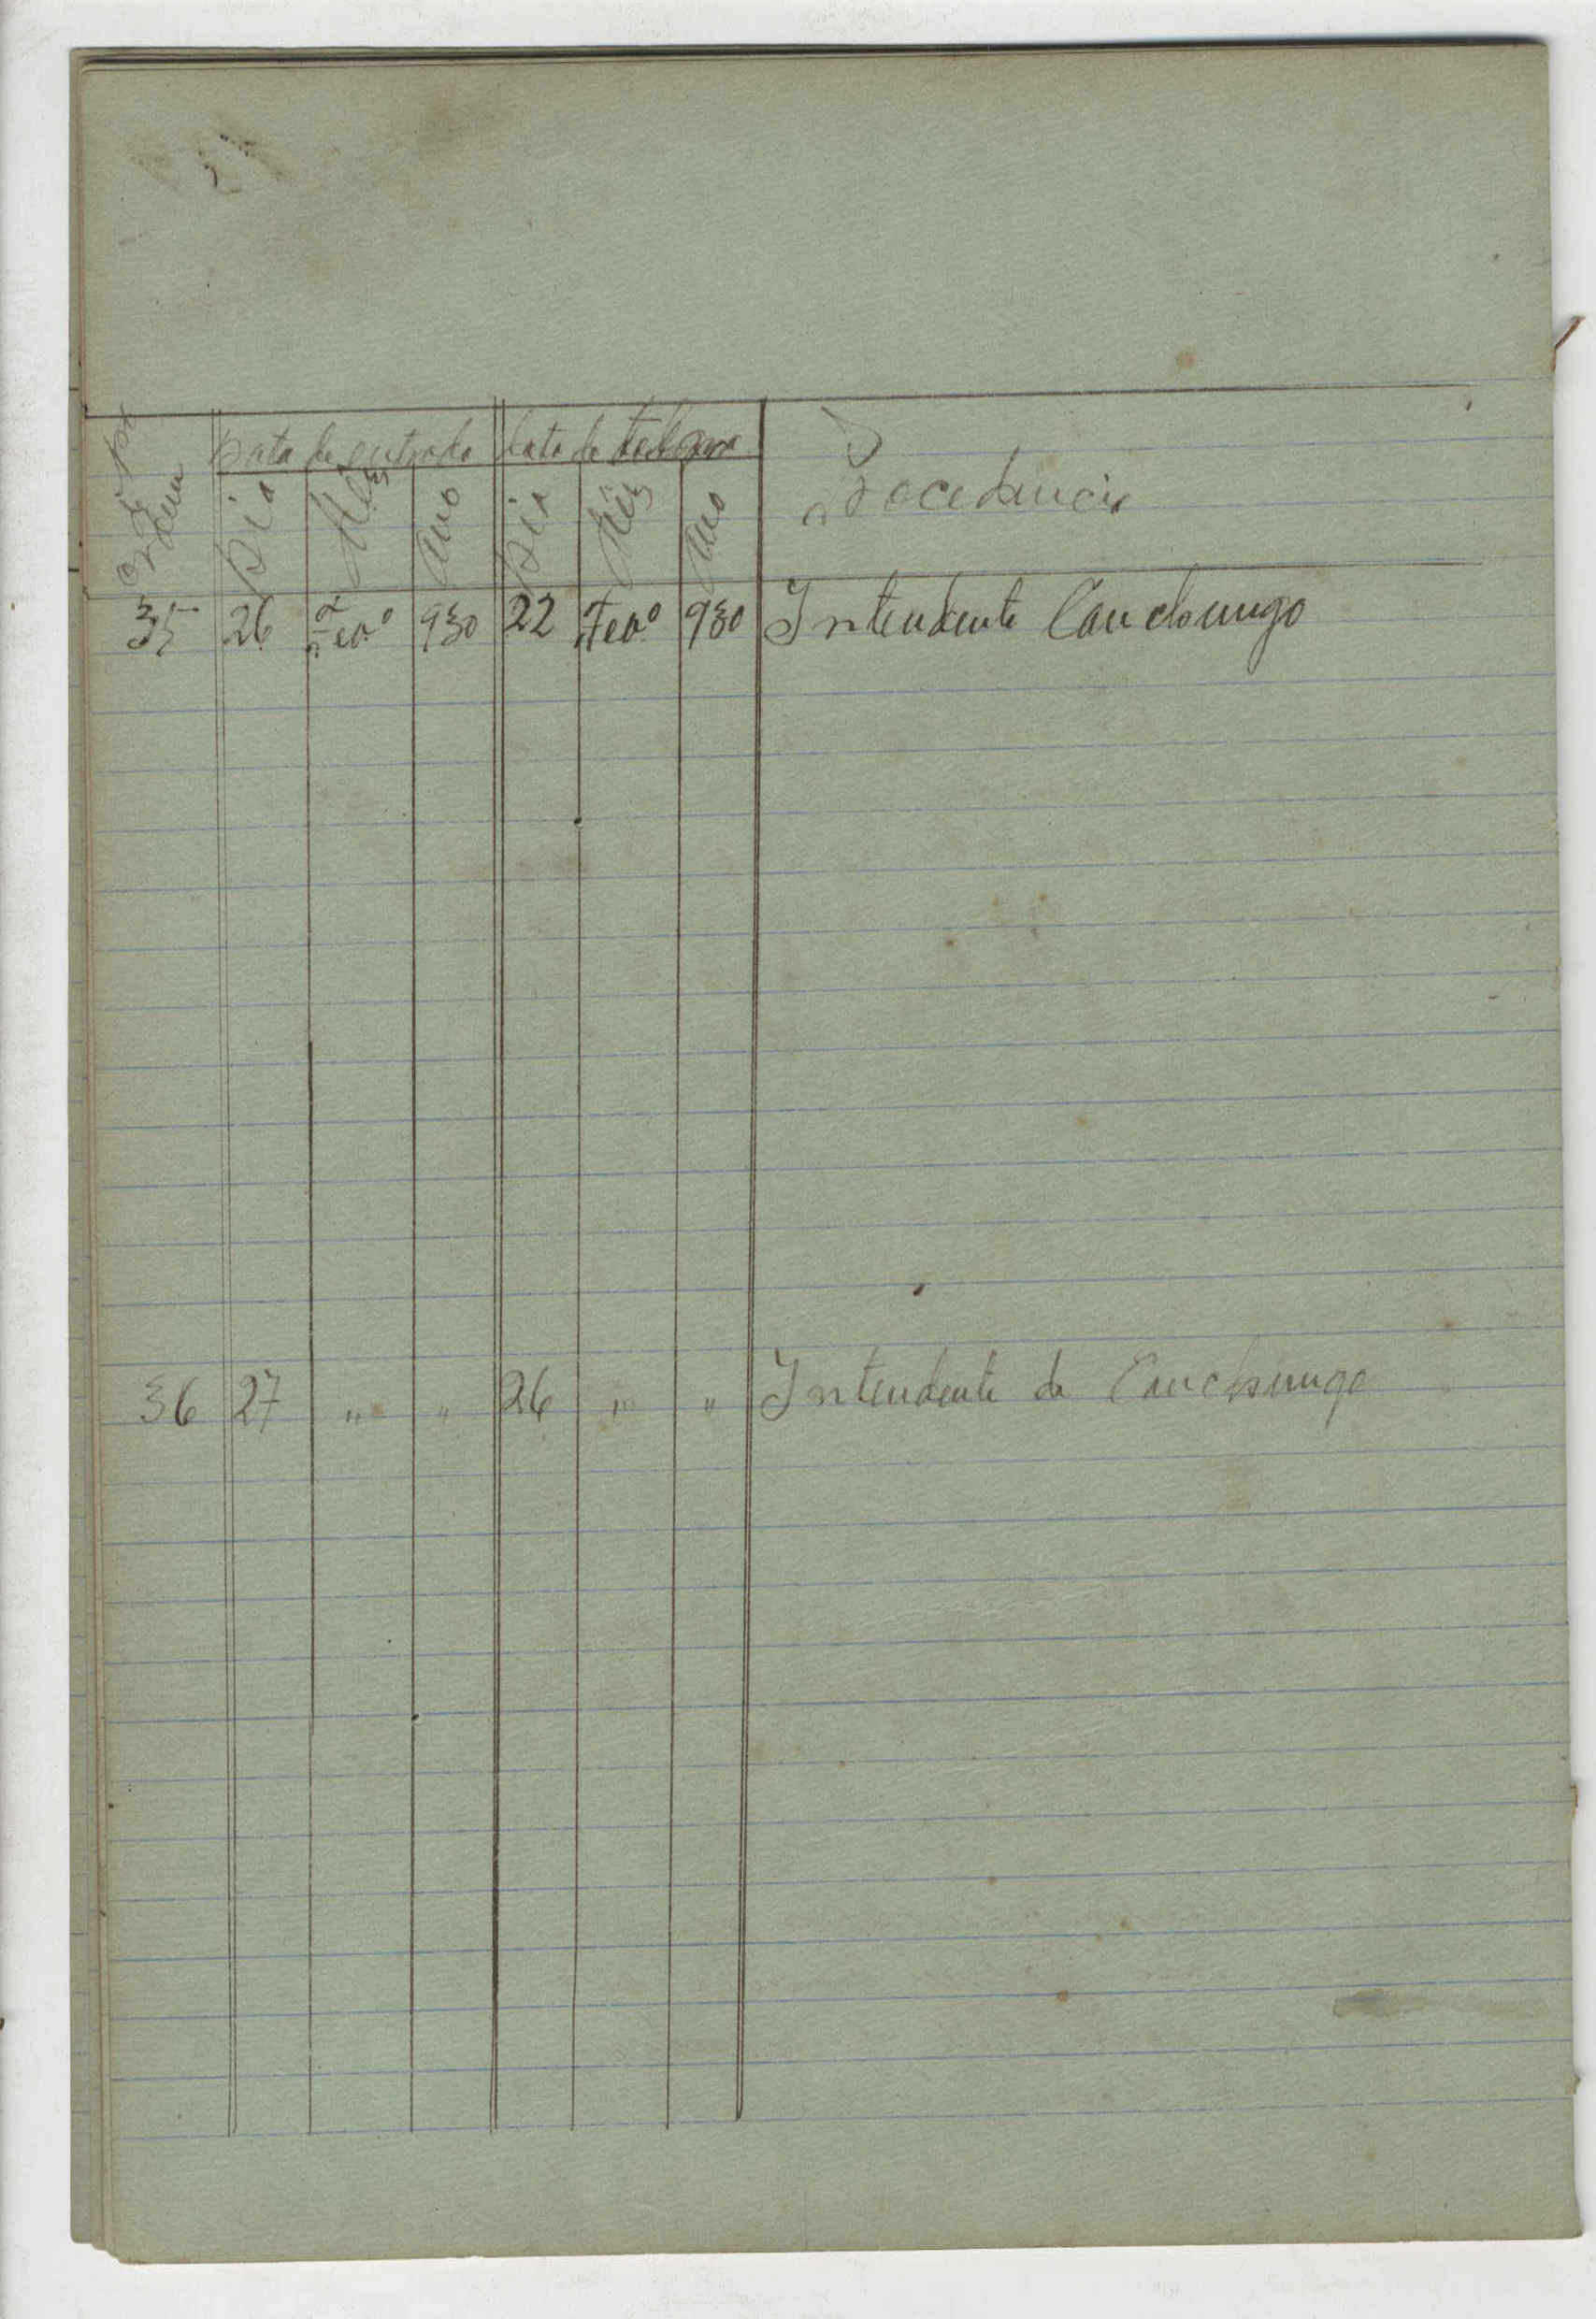 Nº de Ordem
Data de entrada Data de telegrama
Dia Mês Ano Dia Mês Ano Procedencia
35 26 Fevº 930 22 Fevº 930 Intendente Canchungo
36 27 " " 26 " " Intendente de Canchungo